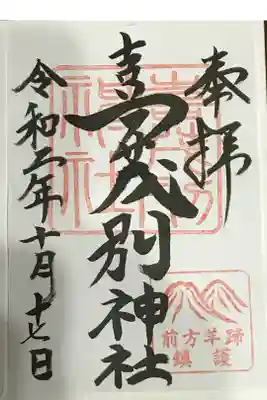 奉拝
喜茂別神社
令和二年十月十七日
前方羊蹄
鎮護